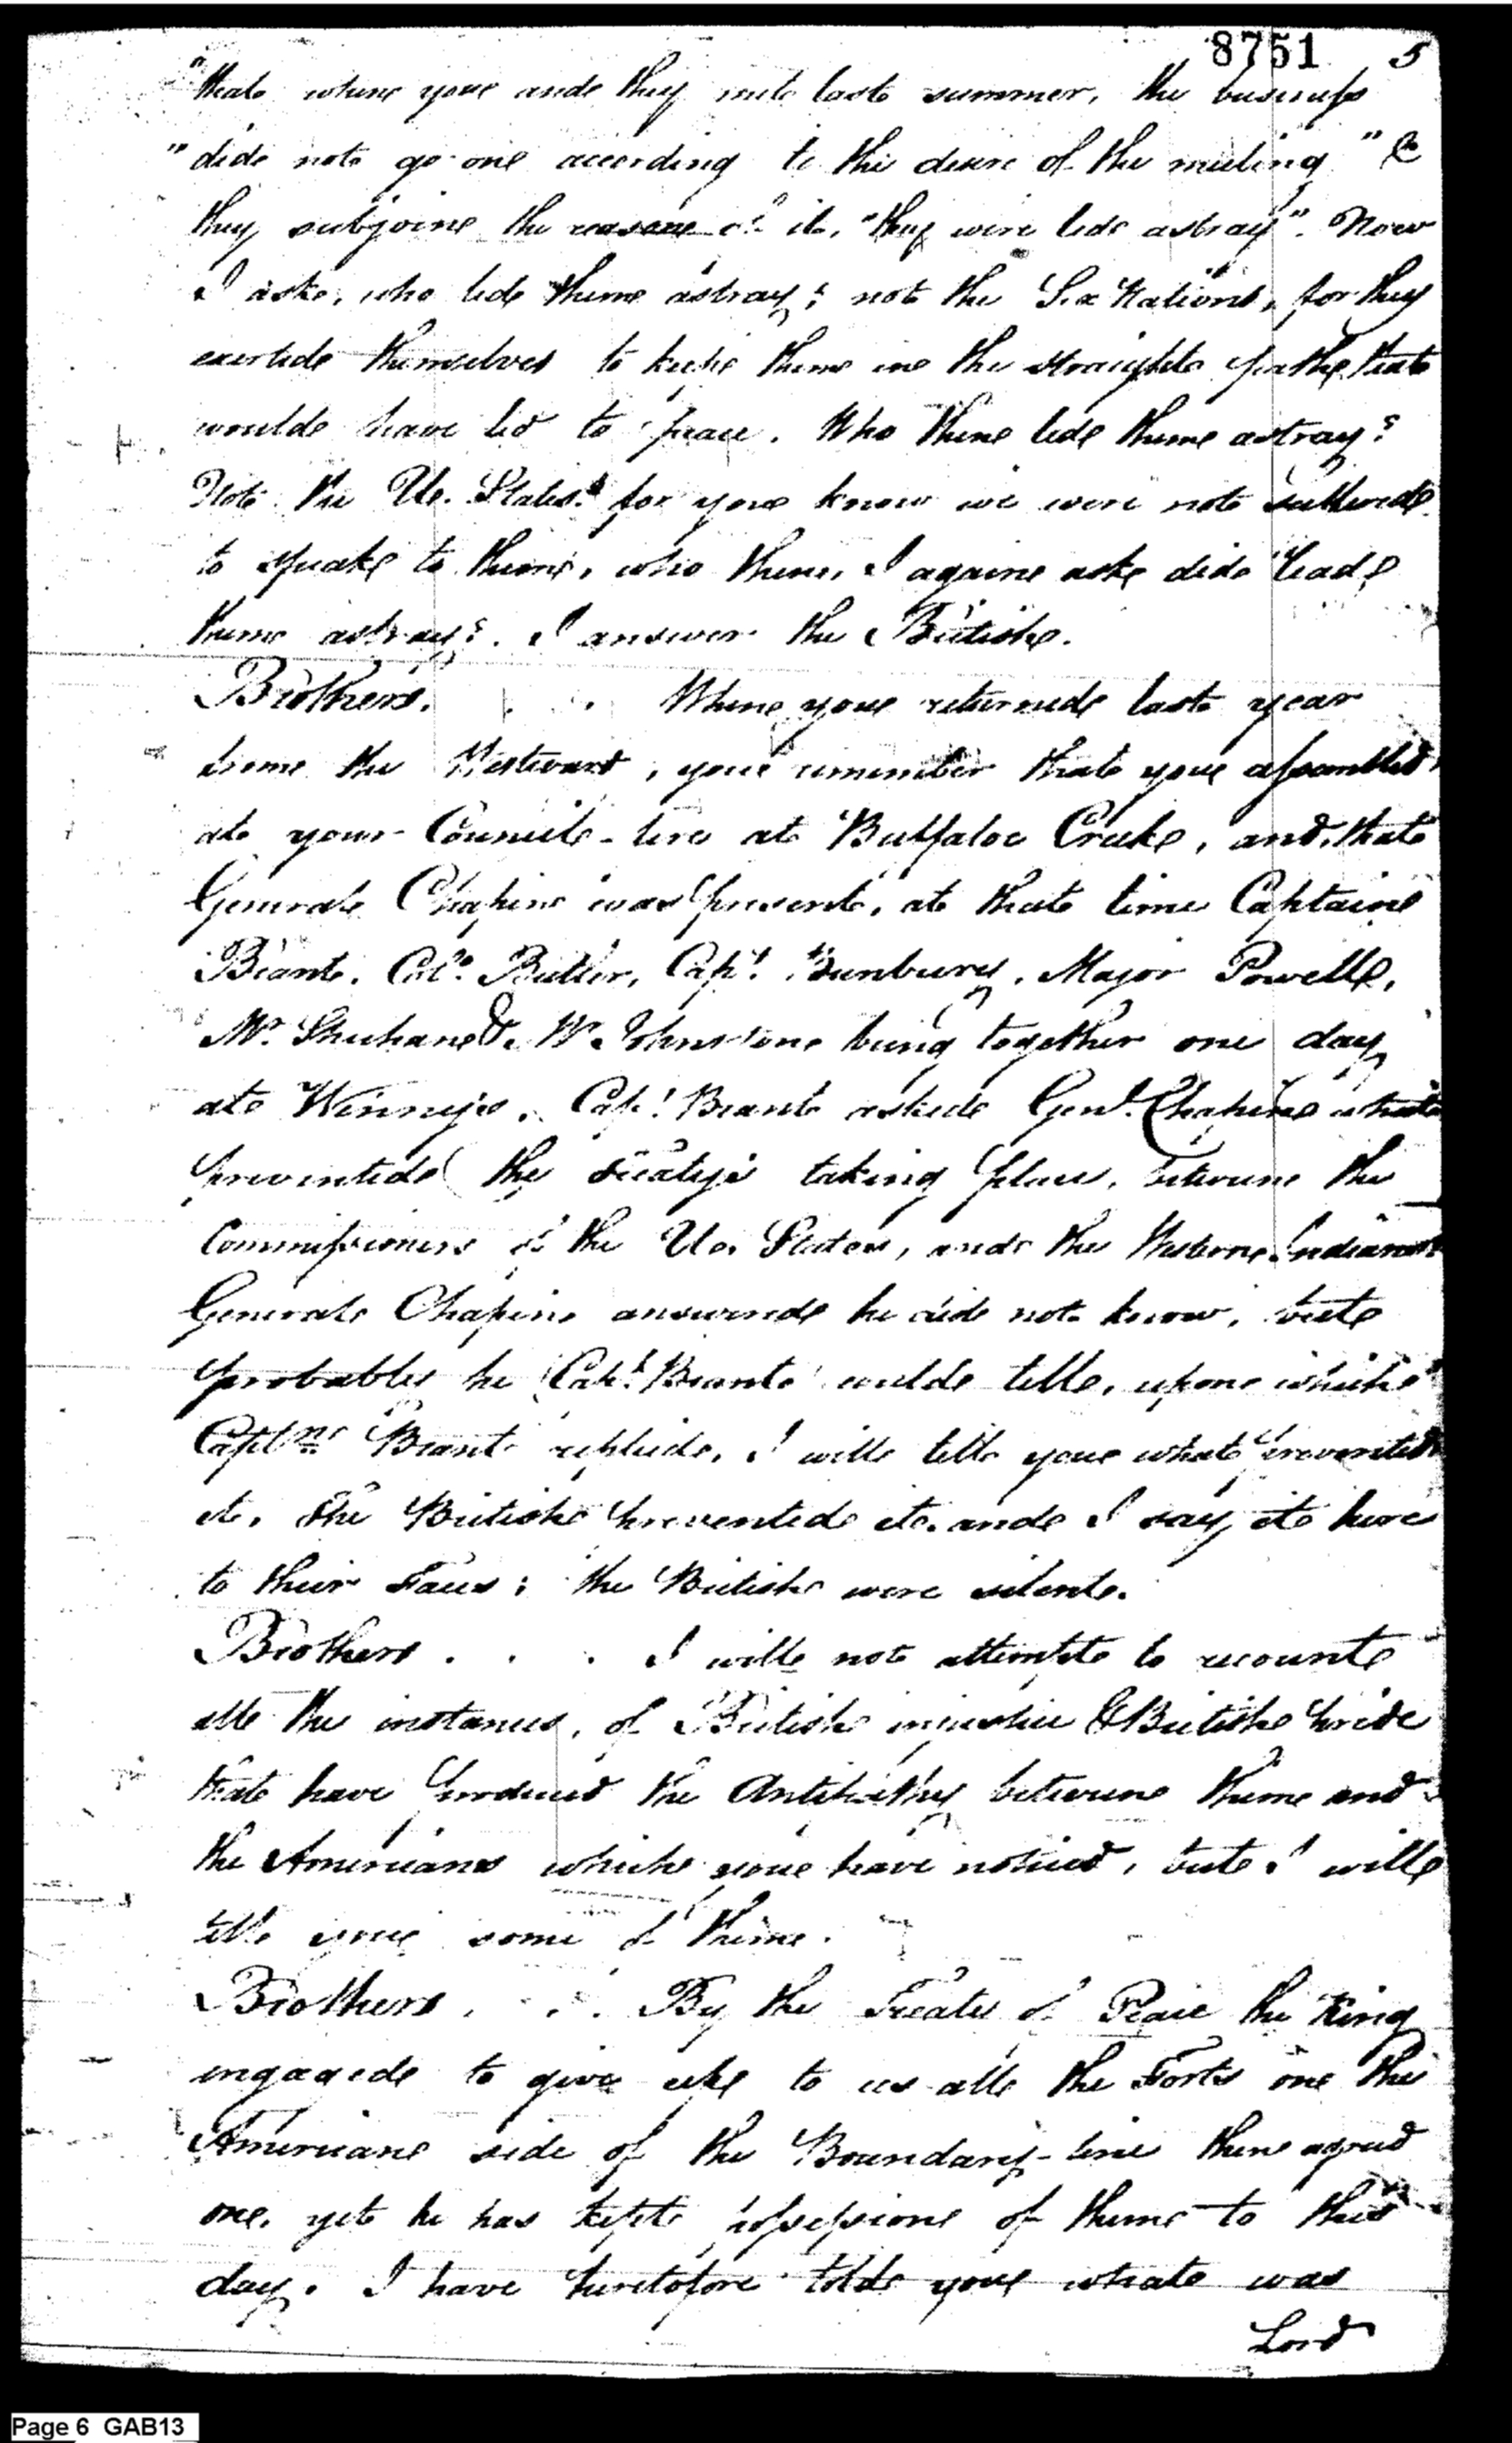 8751 5
"that when you and they met last summer, the business
"did not go on according to the desire of the meeting" &
they subjoin the reason of it, "they were led astray". Now
I ask, who led them astray; not the Six Nations, for they
exerted themselves to keep them in the straight path that
would have led to peace. Who then led them astray?
Not the U. States, for you know we were not suffered
to speak to them, who then, I again ask did lead
them astray?. I answer the British.
Brothers. . . When you returned last year
from the Westward, you remember that you assembled
at your Council-fire at Buffaloe Creek, and that
General Chapin was present, at that time Captain
Brant. Colo. Butler, Capt. Bunbury, Major Powell,
Mr. Sheehan & Wm. Johnston being together one day
at Winneys. Capt. Brant asked Genl. Chapin what
prevented the Treaty's taking place, between the
Commissioners of the U. States, and the Western Indians
General Chapin answered he did not know, but
probably he Capt. Brant could tell, upon which
Captn. Brant replied, I will tell you what prevented
it, The British prevented it. and I say it here
to their Faces; the British were silent.
Brothers . . . I will not attempt to recount
all the instances, of British injustice & British pride
that have produced the Antipathy between them and
the Americans which you have noticed, but I will
tell you some of them.
Brothers . . . By the Treaty of Peace the King
ingaged to give up to us all the Forts on the
American side of the Boundary-line then agreed
on, yet he has kept possession of them to this
day. I have heretofore told you what was
Lord
Page 6 GAB13